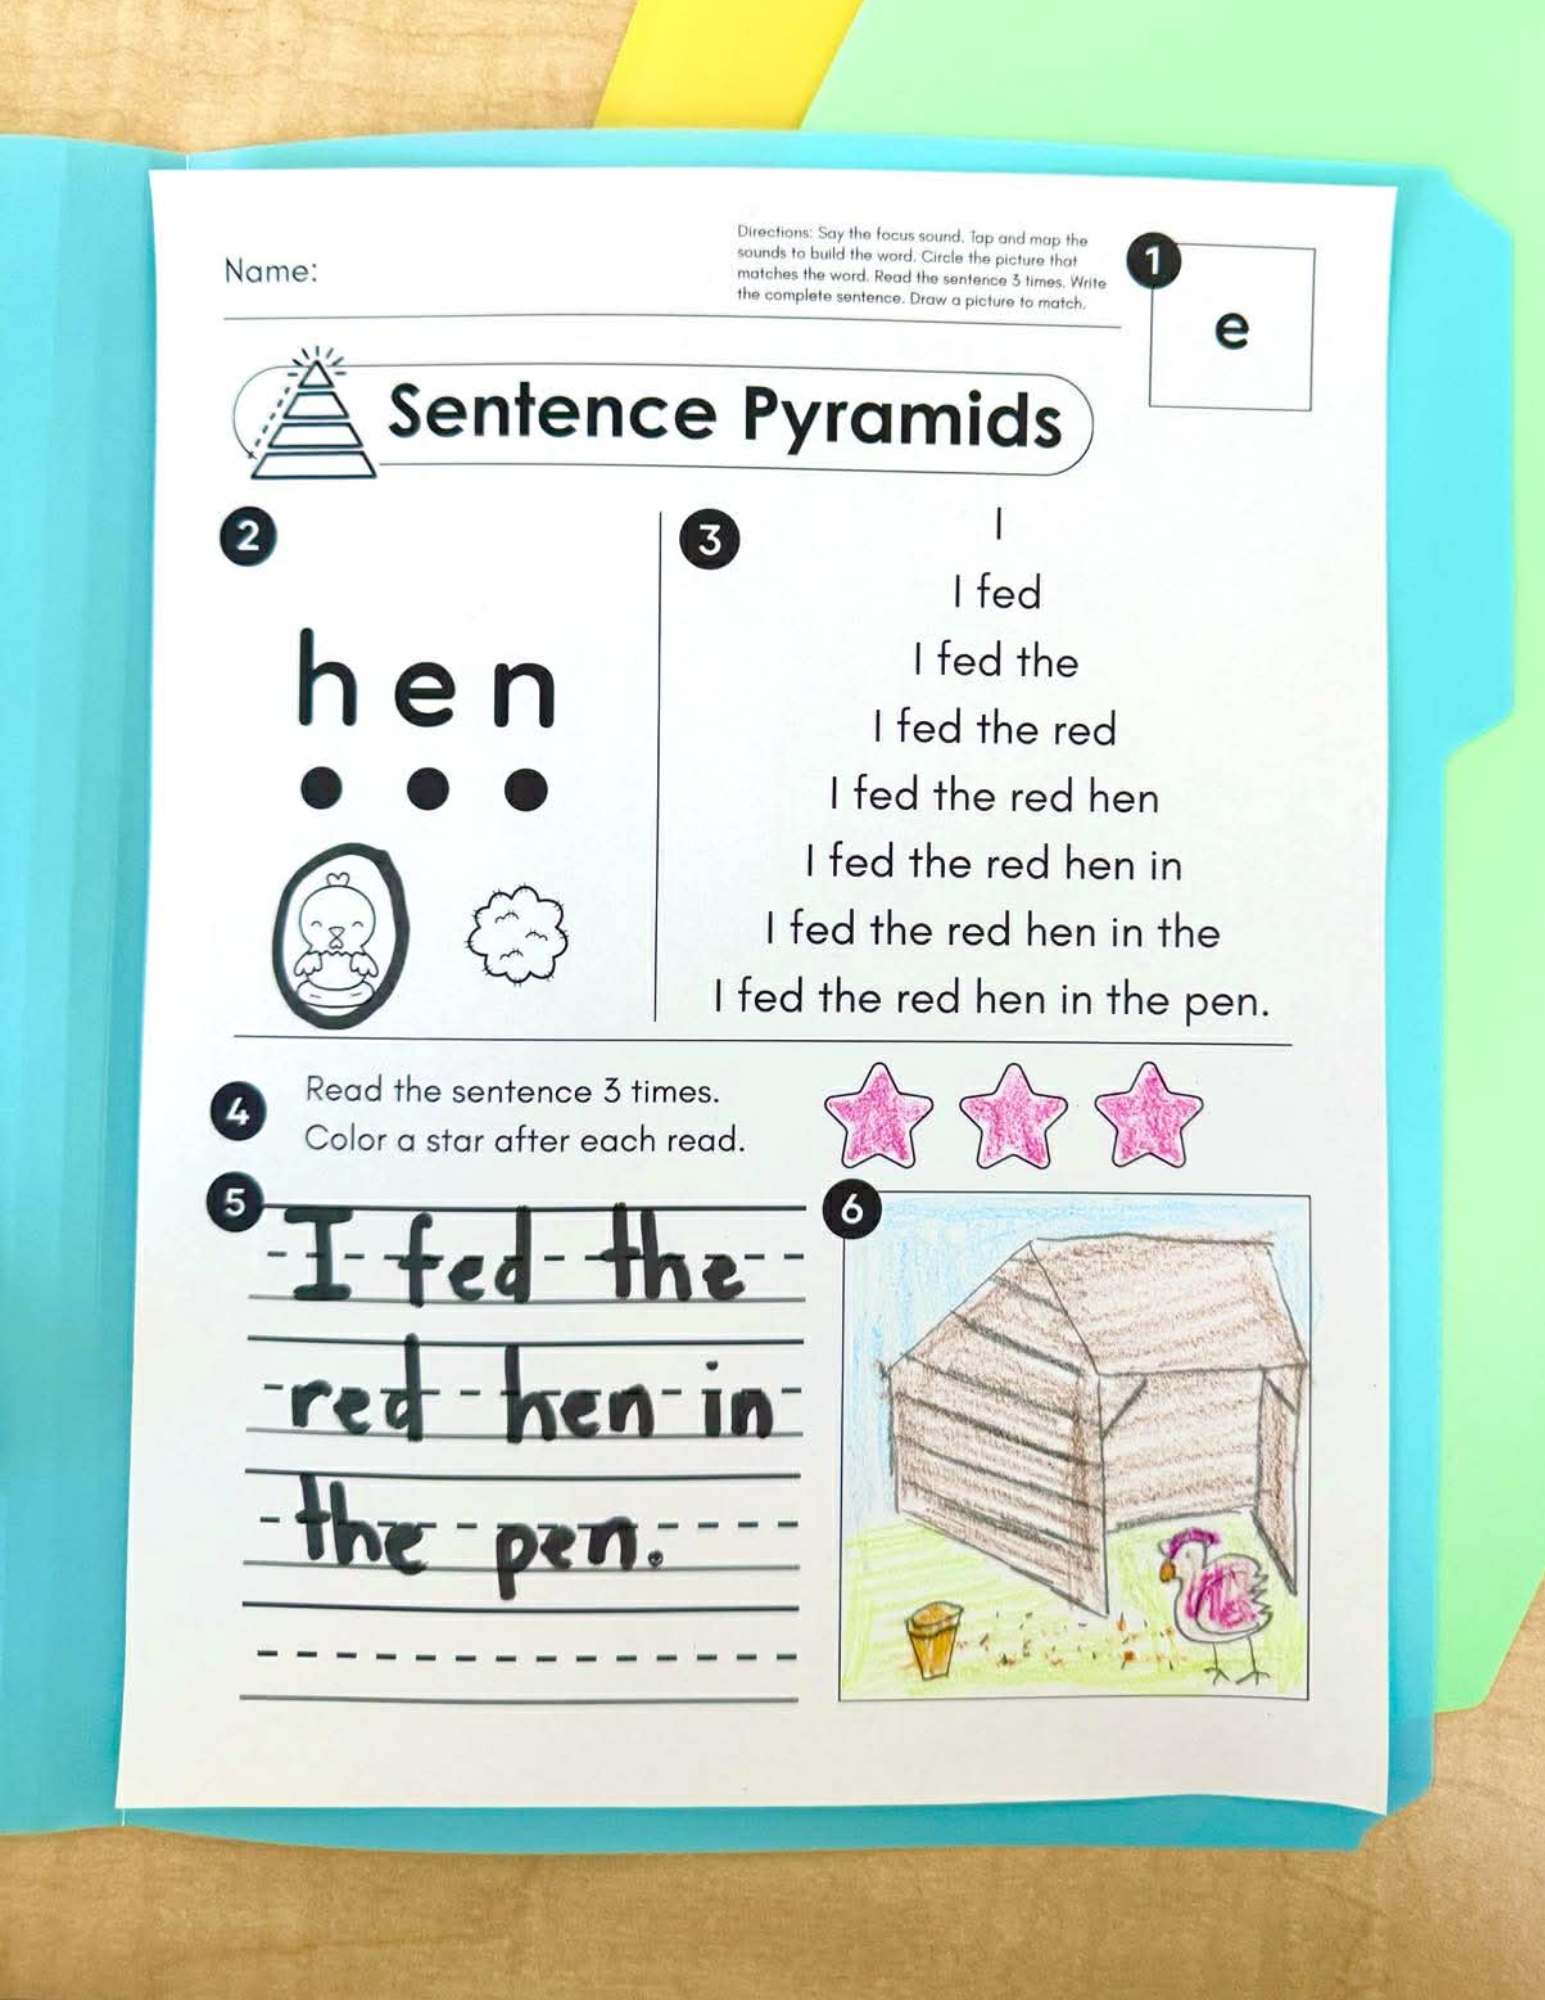 Name:
Directions: Say the focus sound. Tap and map the
sounds to build the word. Circle the picture that
matches the word. Read the sentence 3 times. Write
the complete sentence. Draw a picture to match.
1
e
Sentence Pyramids
2
hen
3
I
I fed
I fed the
I fed the red
I fed the red hen
I fed the red hen in
I fed the red hen in the
I fed the red hen in the pen.
4
Read the sentence 3 times.
Color a star after each read.
5
I fed the
red hen in
the pen.
6